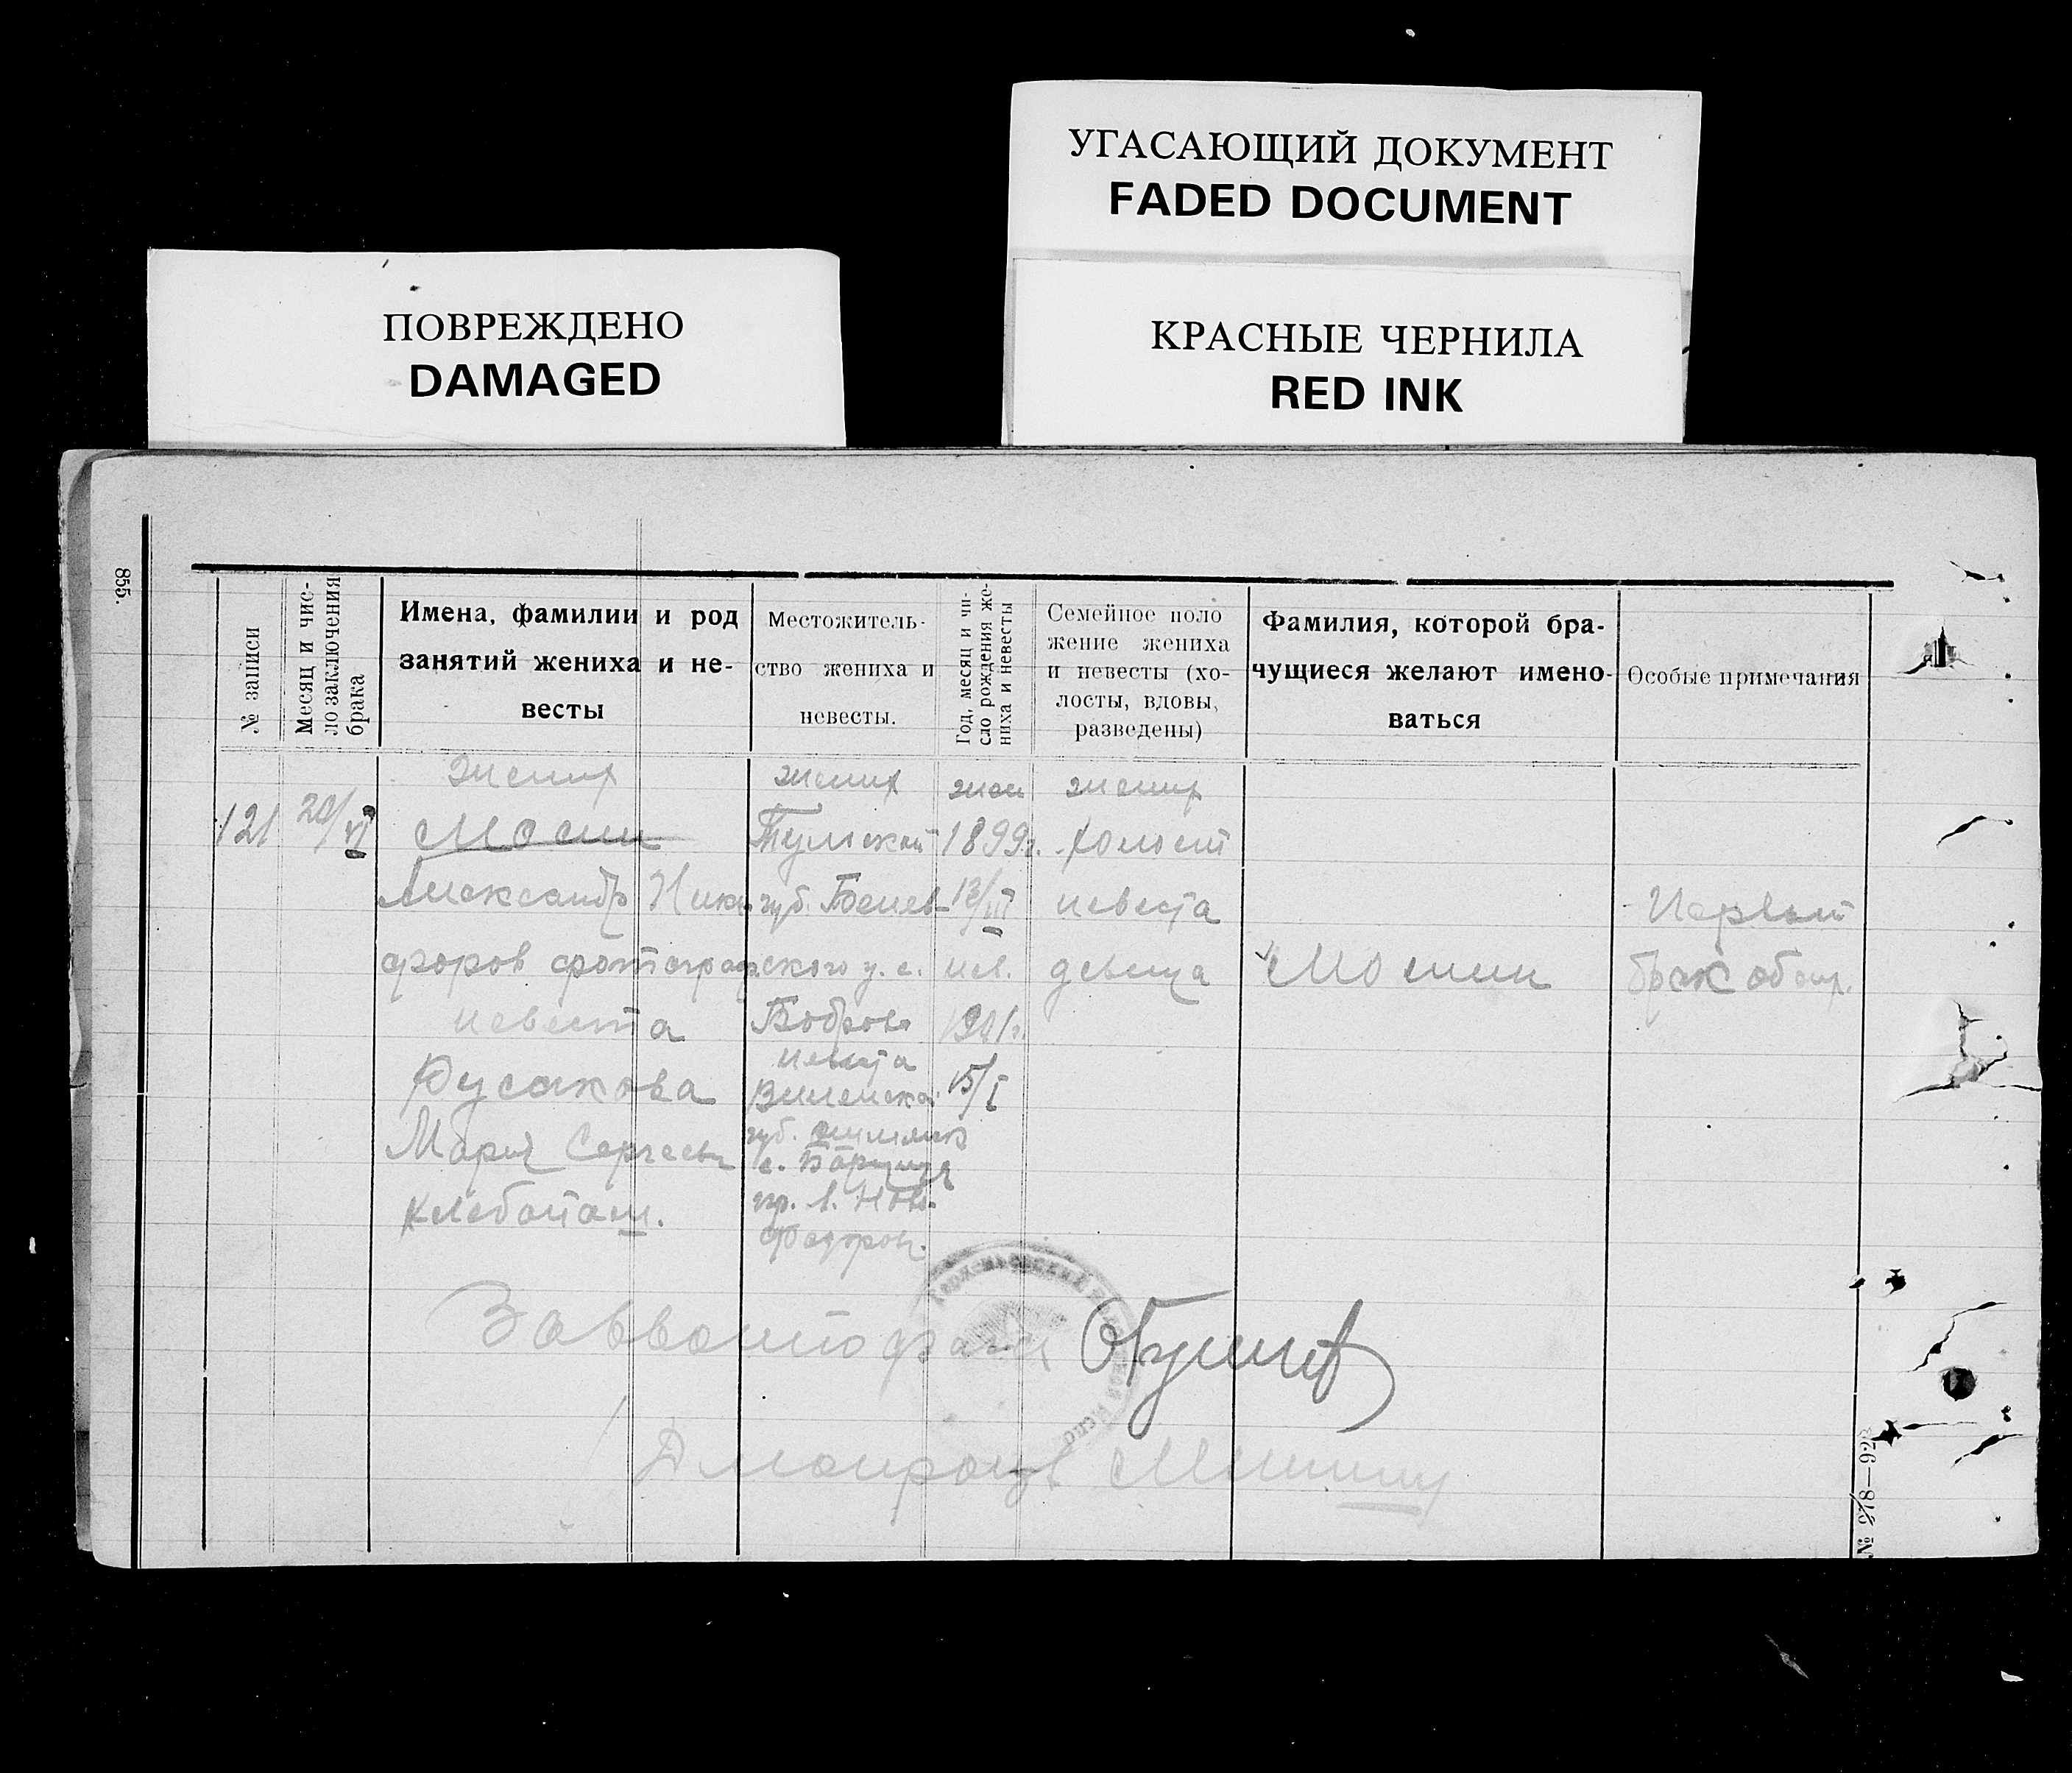 УГАСАЮЩИЙ ДОКУМЕНТ
FADED DOCUMENT
ПОВРЕЖДЕНО
DAMAGED
КРАСНЫЕ ЧЕРНИЛА
RED INK
855.
№ записи
Месяц и чис-
ло заключения
брака
Имена, фамилии и род
занятий жениха и не-
весты
Местожитель-
ство жениха и
невесты.
Год, месяц и чи-
сло рождения же-
ниха и невесты
Семейное поло
жение жениха
и невесты (хо-
лосты, вдовы,
разведены)
Фамилия, которой бра-
чущиеся желают имено-
ваться
Особые примечания
121
20/VI
жених
Мосин
Александр Ники
форов фотограф
невеста
Русакова
Мария Сергеевн
хлебопаш.
жених
Тульской
губ. Венев-
ского у. с.
Боброво
невеста
губ.
с.
гр. в. Ново
Федоров.
жен
1899г.
13/III
нев.
1901г.
15/I
жених
холост
невеста
девица
Мосин
Первый
брак обоих.
Завзаптофаги
№ 378—923